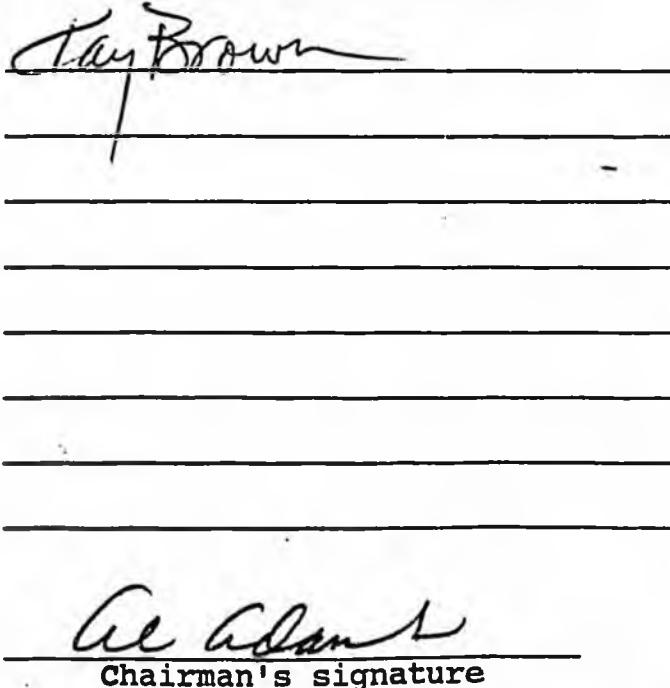 Kay Brown
Al Adams
Chairman's signature